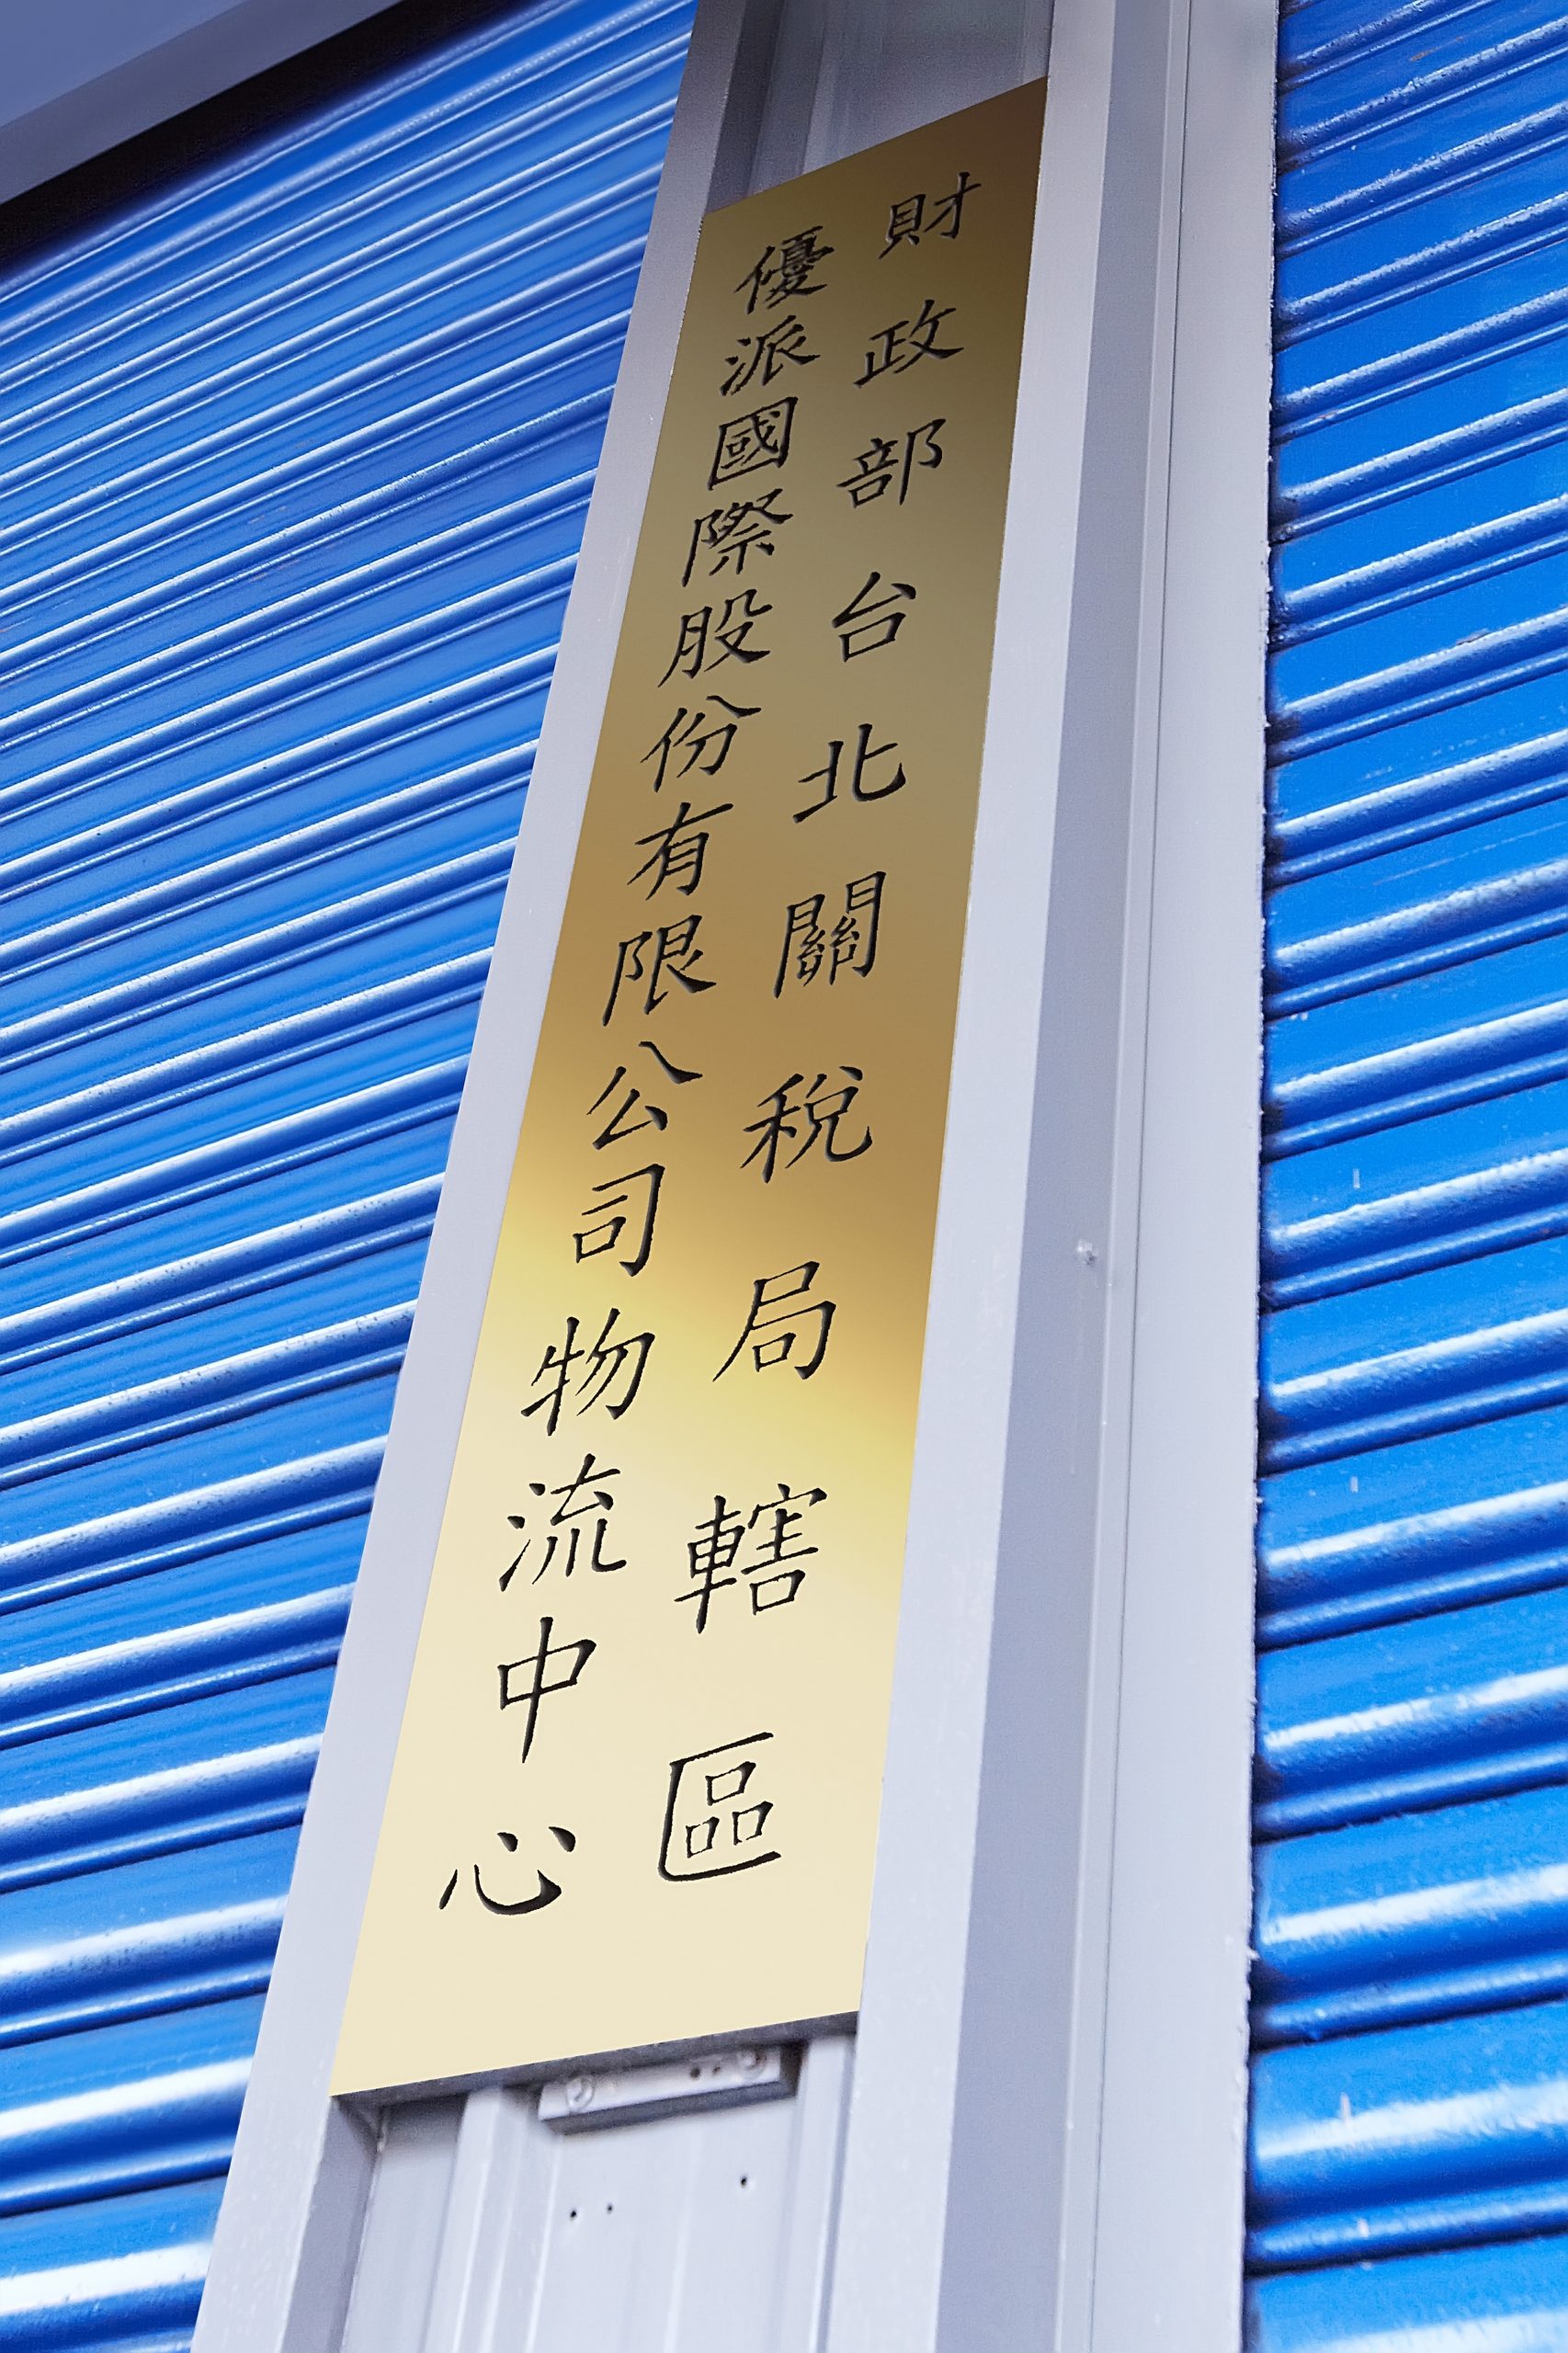 財政部台北關稅局轄區
優派國際股份有限公司物流中心